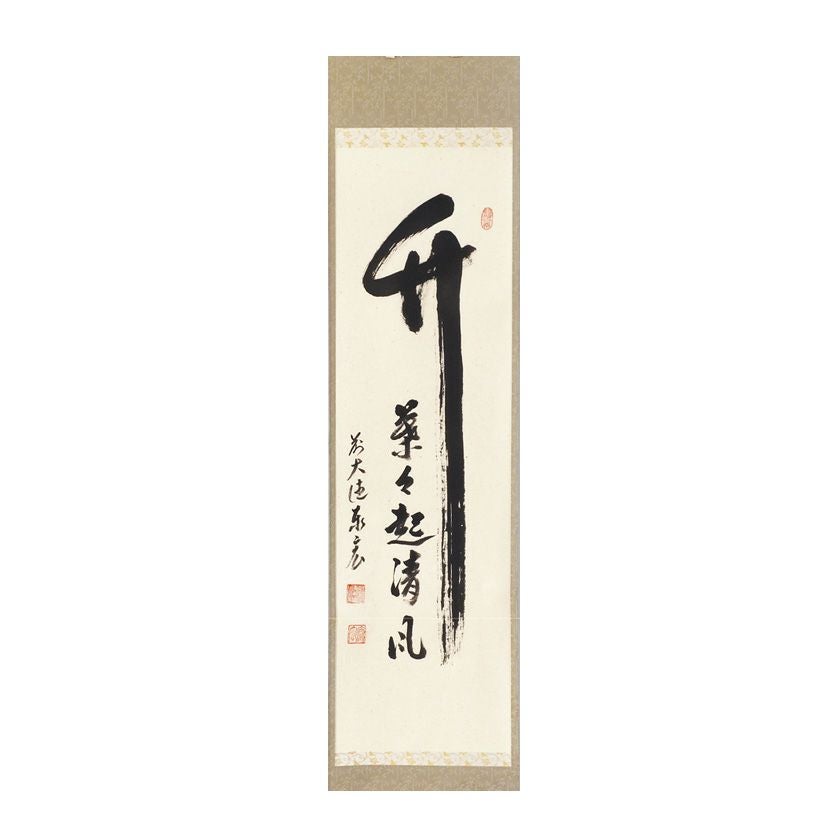 竹
葉々起清風
前大徳泰宏